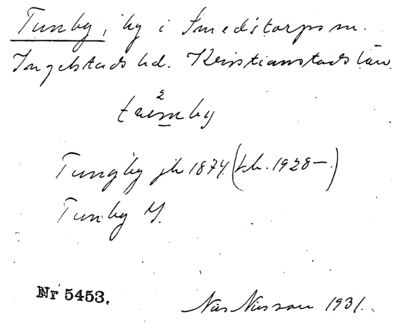 Tunby, by i Smedstorps sn.
Ingelstads hd. Kristianstads län
2
Tungby jb 1874 (kb. 1928–)
Tunby
Nr 5453.
Nils Nilsson 1931.